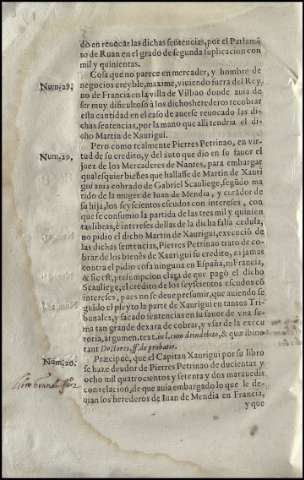 do en reuocar las dichas sentencias, por el Parlamẽ
to de Ruan en el grado de segunda suplicacion con
mil y quinientas.
Num. 28.
Cosa que no parece en mercader, y hombre de
negocios creyble, maxime, viuiendo fuera del Rey,
no de Francia en la villa de Viluao donde auia de
ser muy dificultoso à los dichos herederos recobrar
esta cantidad en el caso de auerse reuocado las di
chas sentencias, por la mano que allà tendria el di
cho Martin de Xaurigui.
Num. 29.
Pero como realmente Pierres Petrinao, en vir-
tud de su credito, y del auto que dio en su fauor el
juez de los Mercaderes de Nantes, para embargar
qualesquier bienes que hallasse de Martin de Xauri
gui auia cobrado de Gabriel Scauliege, segũdo ma
rido de la muger de Iuan de Mendia, y curador de
su hija, los seyscientos escudos con interesses, con
que se consumio la partida de las tres mil y quinien
tas libras, è interesses dellas de la dicha falsa cedula,
no pidio el dicho Martin de Xaurigui, execuciõ de
las dichas sentencias, Pierres Petrinao trato de co-
brar de los bienes de Xaurigui su credito, ni jamas
contra èl pidio cosa ninguna en España, ni Francia,
presumpcion clara de que pagò el dicho
Scauliege, el credito de los seyscientos escudos cõ
interesses, pues no se deue presumir, que auiendo se
guido el pleyto la parte de Xaurigui en tantos Tri
bunales, y sacado sentencias en su fauor de vna su-
ma tan grande dexara de cobrar, y vsar de la execu
toria, argument. text. &amp; que ibi no
tant Doctores, ff. de probatio.
Num. 30.
Præcipuè, que el Capitan Xaurigui por su libro
se haze deudor de Pierres Petrinao de ducientas y
ocho mil quatrocientos y setenta y dos marauedis
con relacion, de que auia embargado lo que le de-
uian los herederos de Iuan de Mendia en Francia,
y que